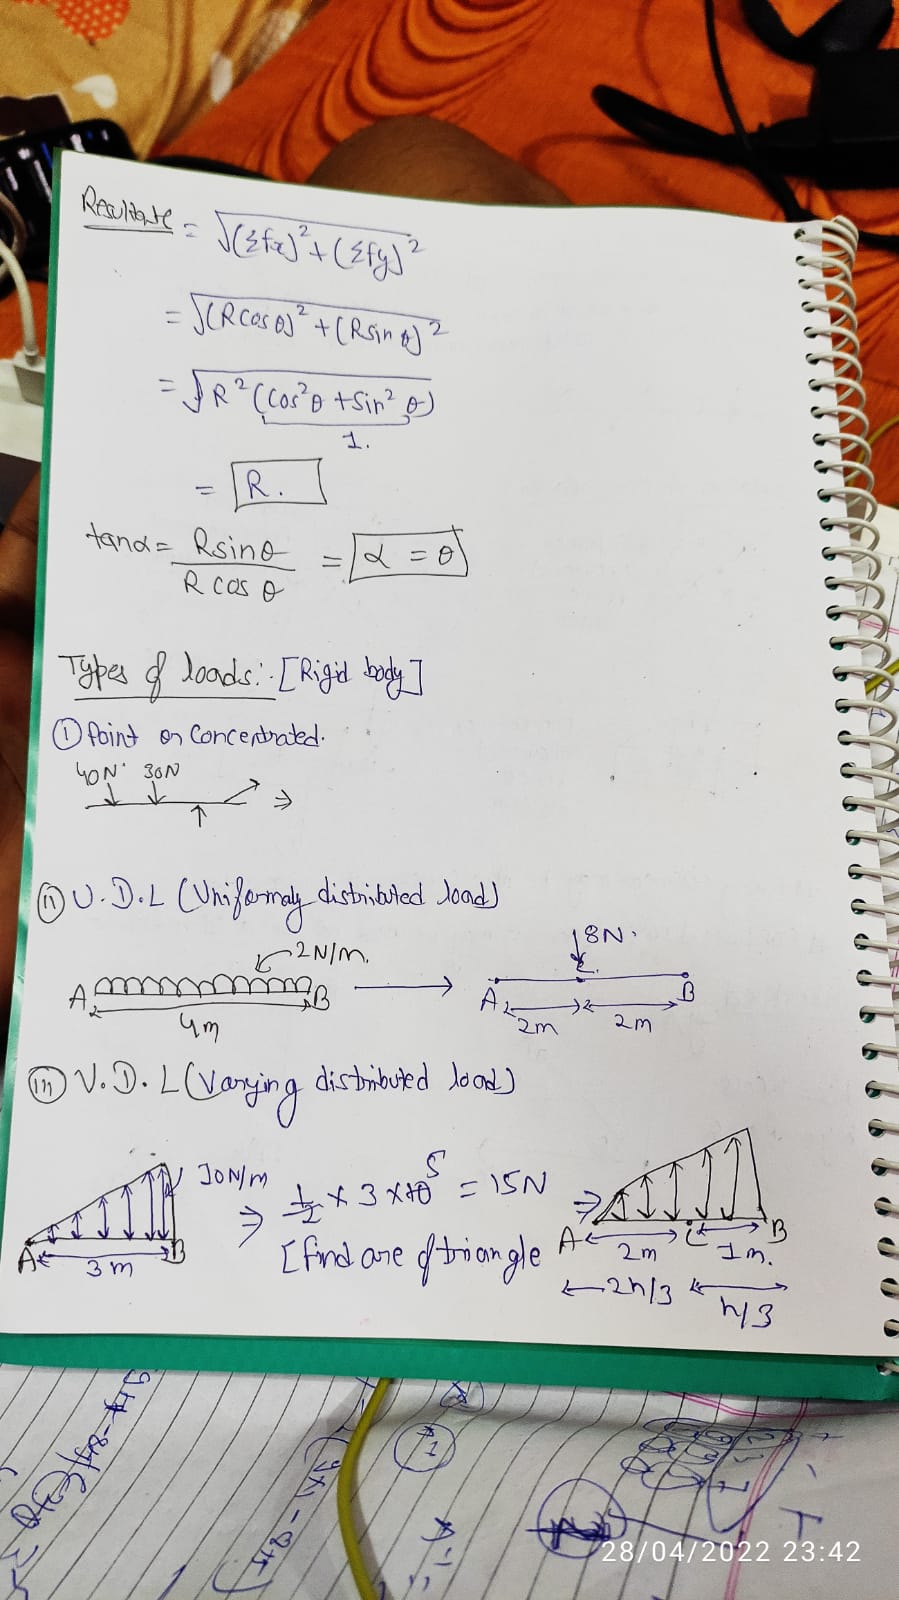 Resultante = √(Σfx)² + (Σfy)²
= √(Rcosθ)² + (Rsinθ)²
= √R²(cos²θ + Sin²θ)
1.
= R.
tanα = Rsinθ / Rcosθ = α = θ
Types of loads: [Rigid body]
① Point or Concentrated.
40N 30N
⇒
ⅱ U.D.L (Uniformaly distributed load)
2N/m.
8N.
A B
A C B
4m
2m 2m
ⅲ V.D.L (Varying distributed load)
10N/m
5
⇒ 1/2 × 3 × 10 = 15N ⇒
[find are of triangle
A B
3m
A C B
2m 1m.
2h/3 h/3
28/04/2022 23:42